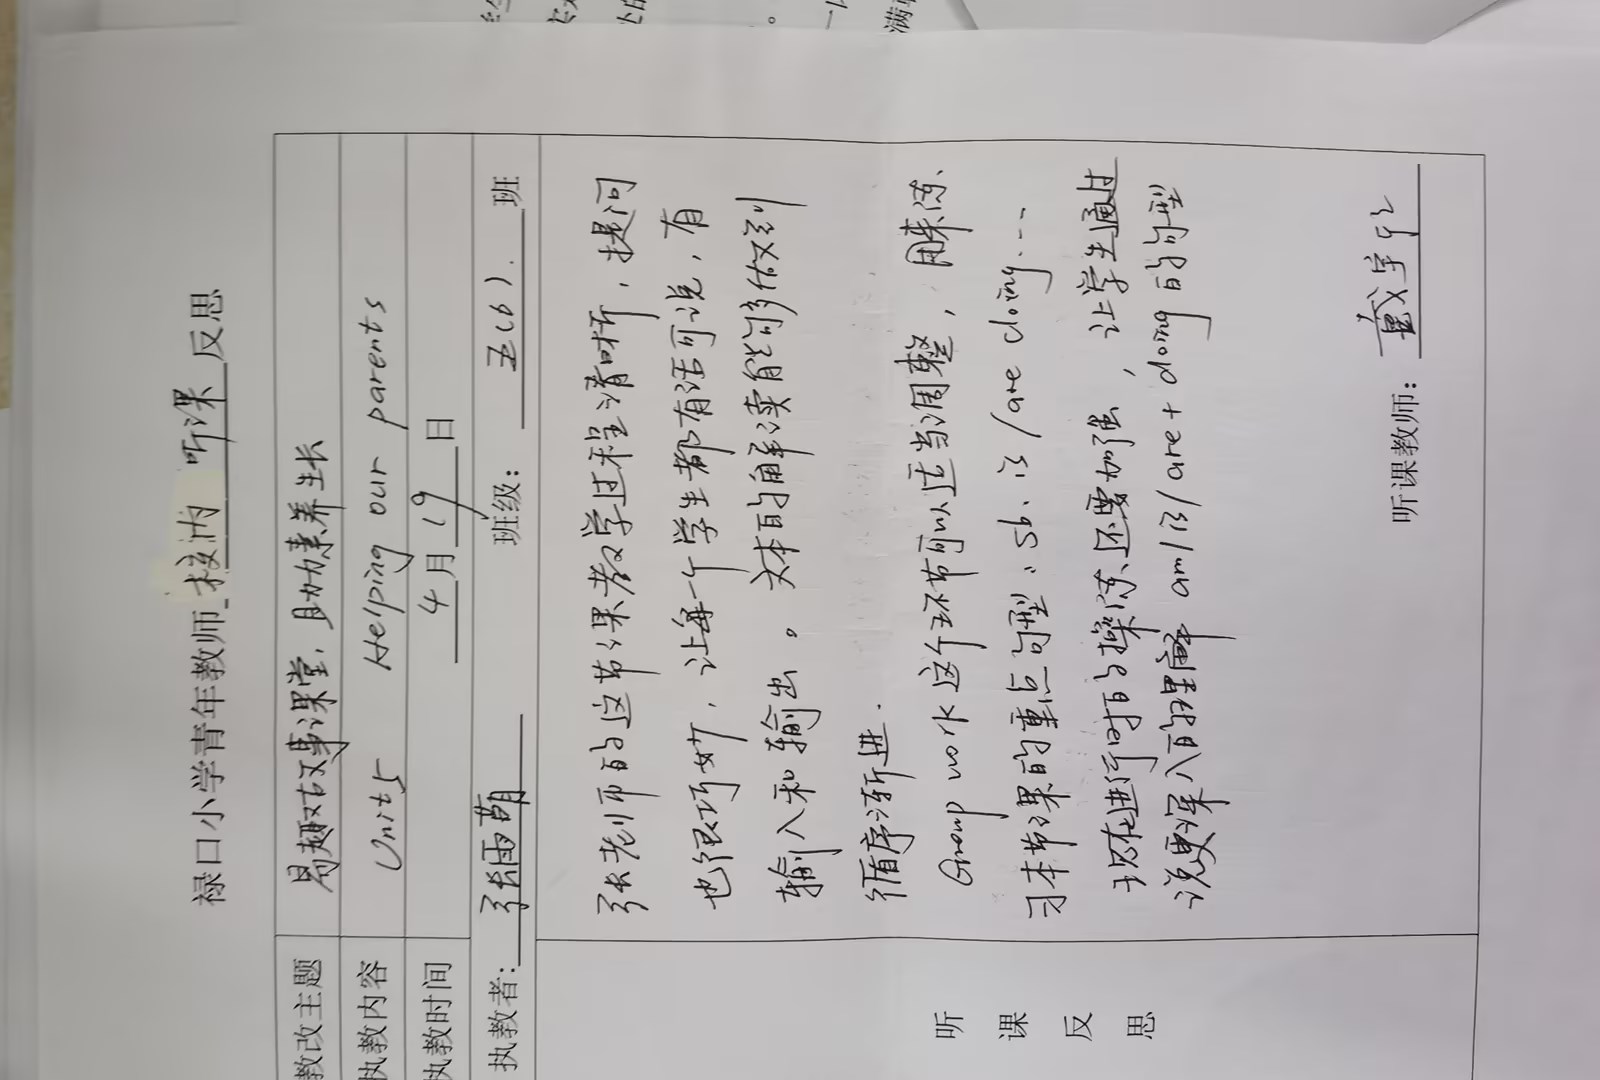 禄口小学青年教师 校内 听课 反思
教改主题 易趣故事课堂，助力素养生长
执教内容 Unit5 Helping our parents
执教时间 4月19日
执教者：张雨萌 班级：五（6）. 班
听课反思
张老师的这节课教学过程清晰，提问
也很巧妙，让每一个学生都有话可说，有
输入和输出。文本的解读有
循序渐进.
Group work 这个环节可以适当调整，操练
习本节课的重点句型：sb. is/are doing...
现在进行时的操练还需加强，让学生通过
说更深入 am/is/are+doing 的句型
听课教师：戴宇